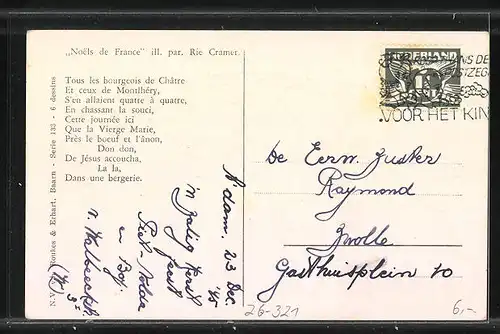 „Noëls de France" ill. par. Rie Cramer.
Tous les bourgeois de Châtre
Et ceux de Monthéry,
S'en allaient quatre à quatre,
En chassant la souci,
Cette journée ici
Que la Vierge Marie,
Près le bœuf et l'ânon,
Don don,
De Jésus accoucha,
La la,
Dans une bergerie.
& Erhart, Baarn - Serie 135 - 6 dessins
NEDERLAND
VOOR HET KIN
De Eerw. Zuster
Raymond
Zwolle
Gasthuisplein 10
A'dam. 23 Dec.
'n zalig Kerst
feest
Piet
en
v.
26-321
6,-